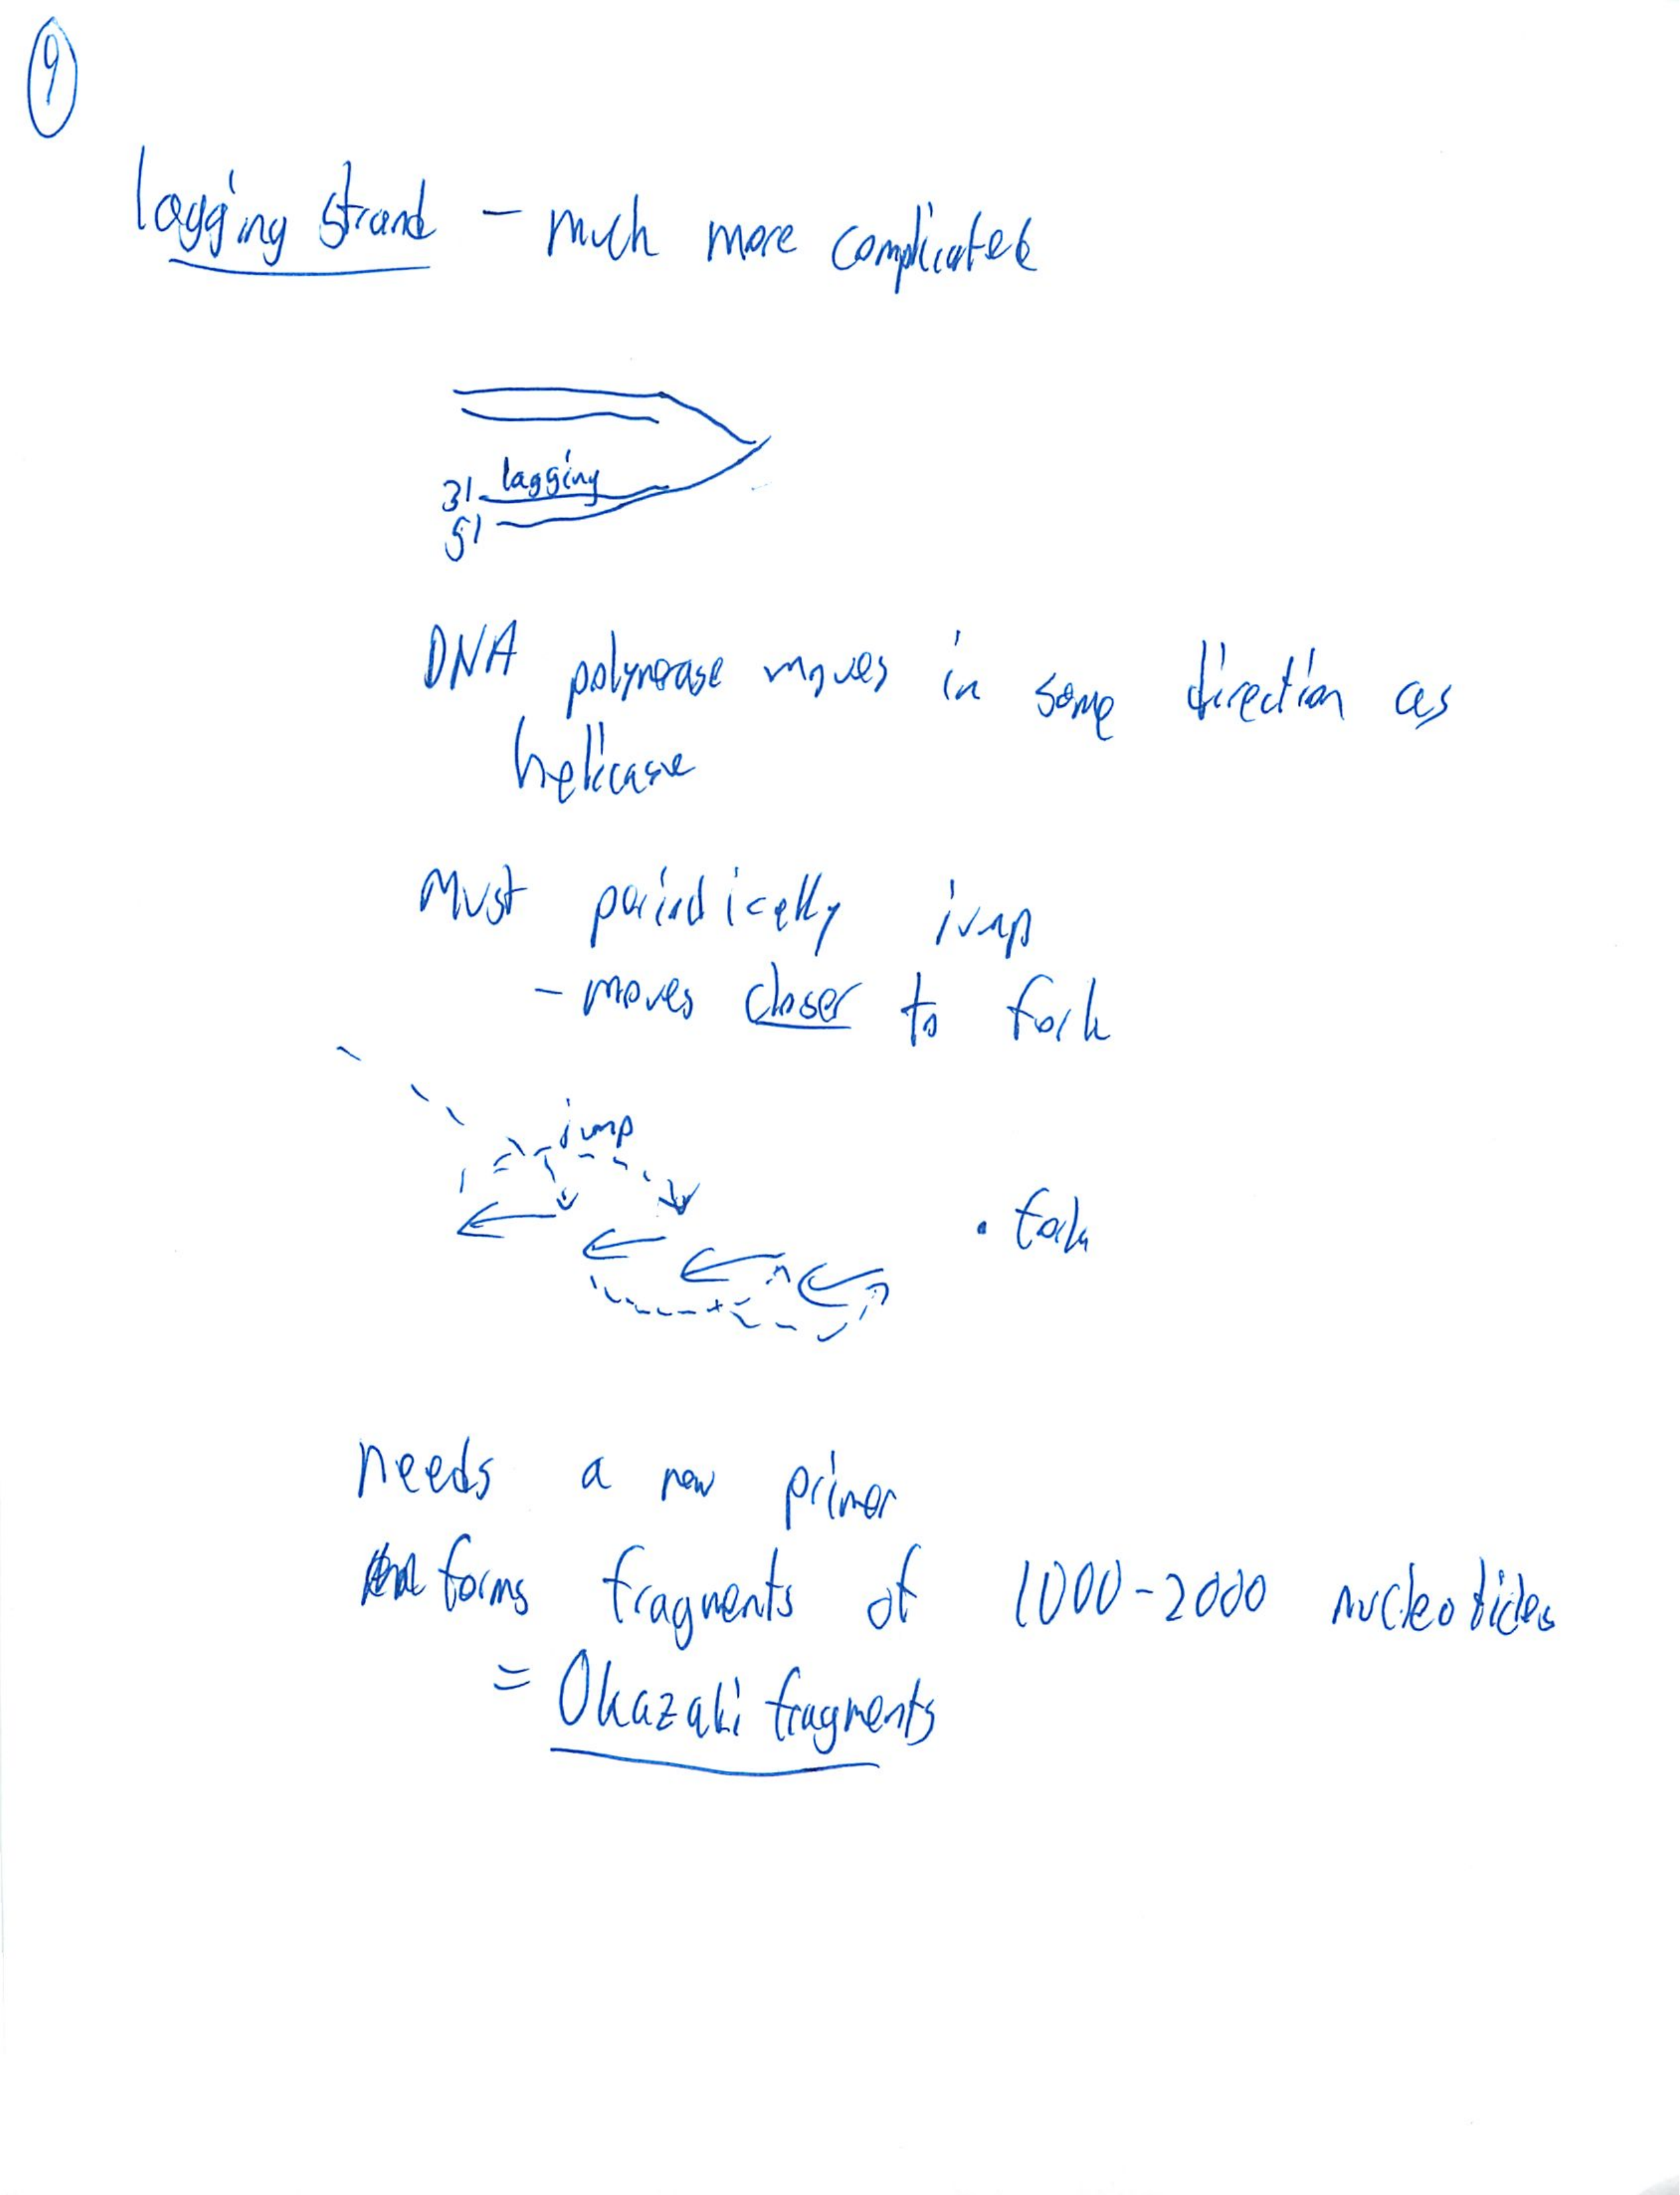 9
lagging strand - much more complicated
lagging
3'
5'
DNA polymerase moves in same direction as
helicase
Must periodically jump
- moves closer to fork
jump
. fork
needs a new primer
forms fragments of 1000-2000 nucleotides
= Okazaki fragments